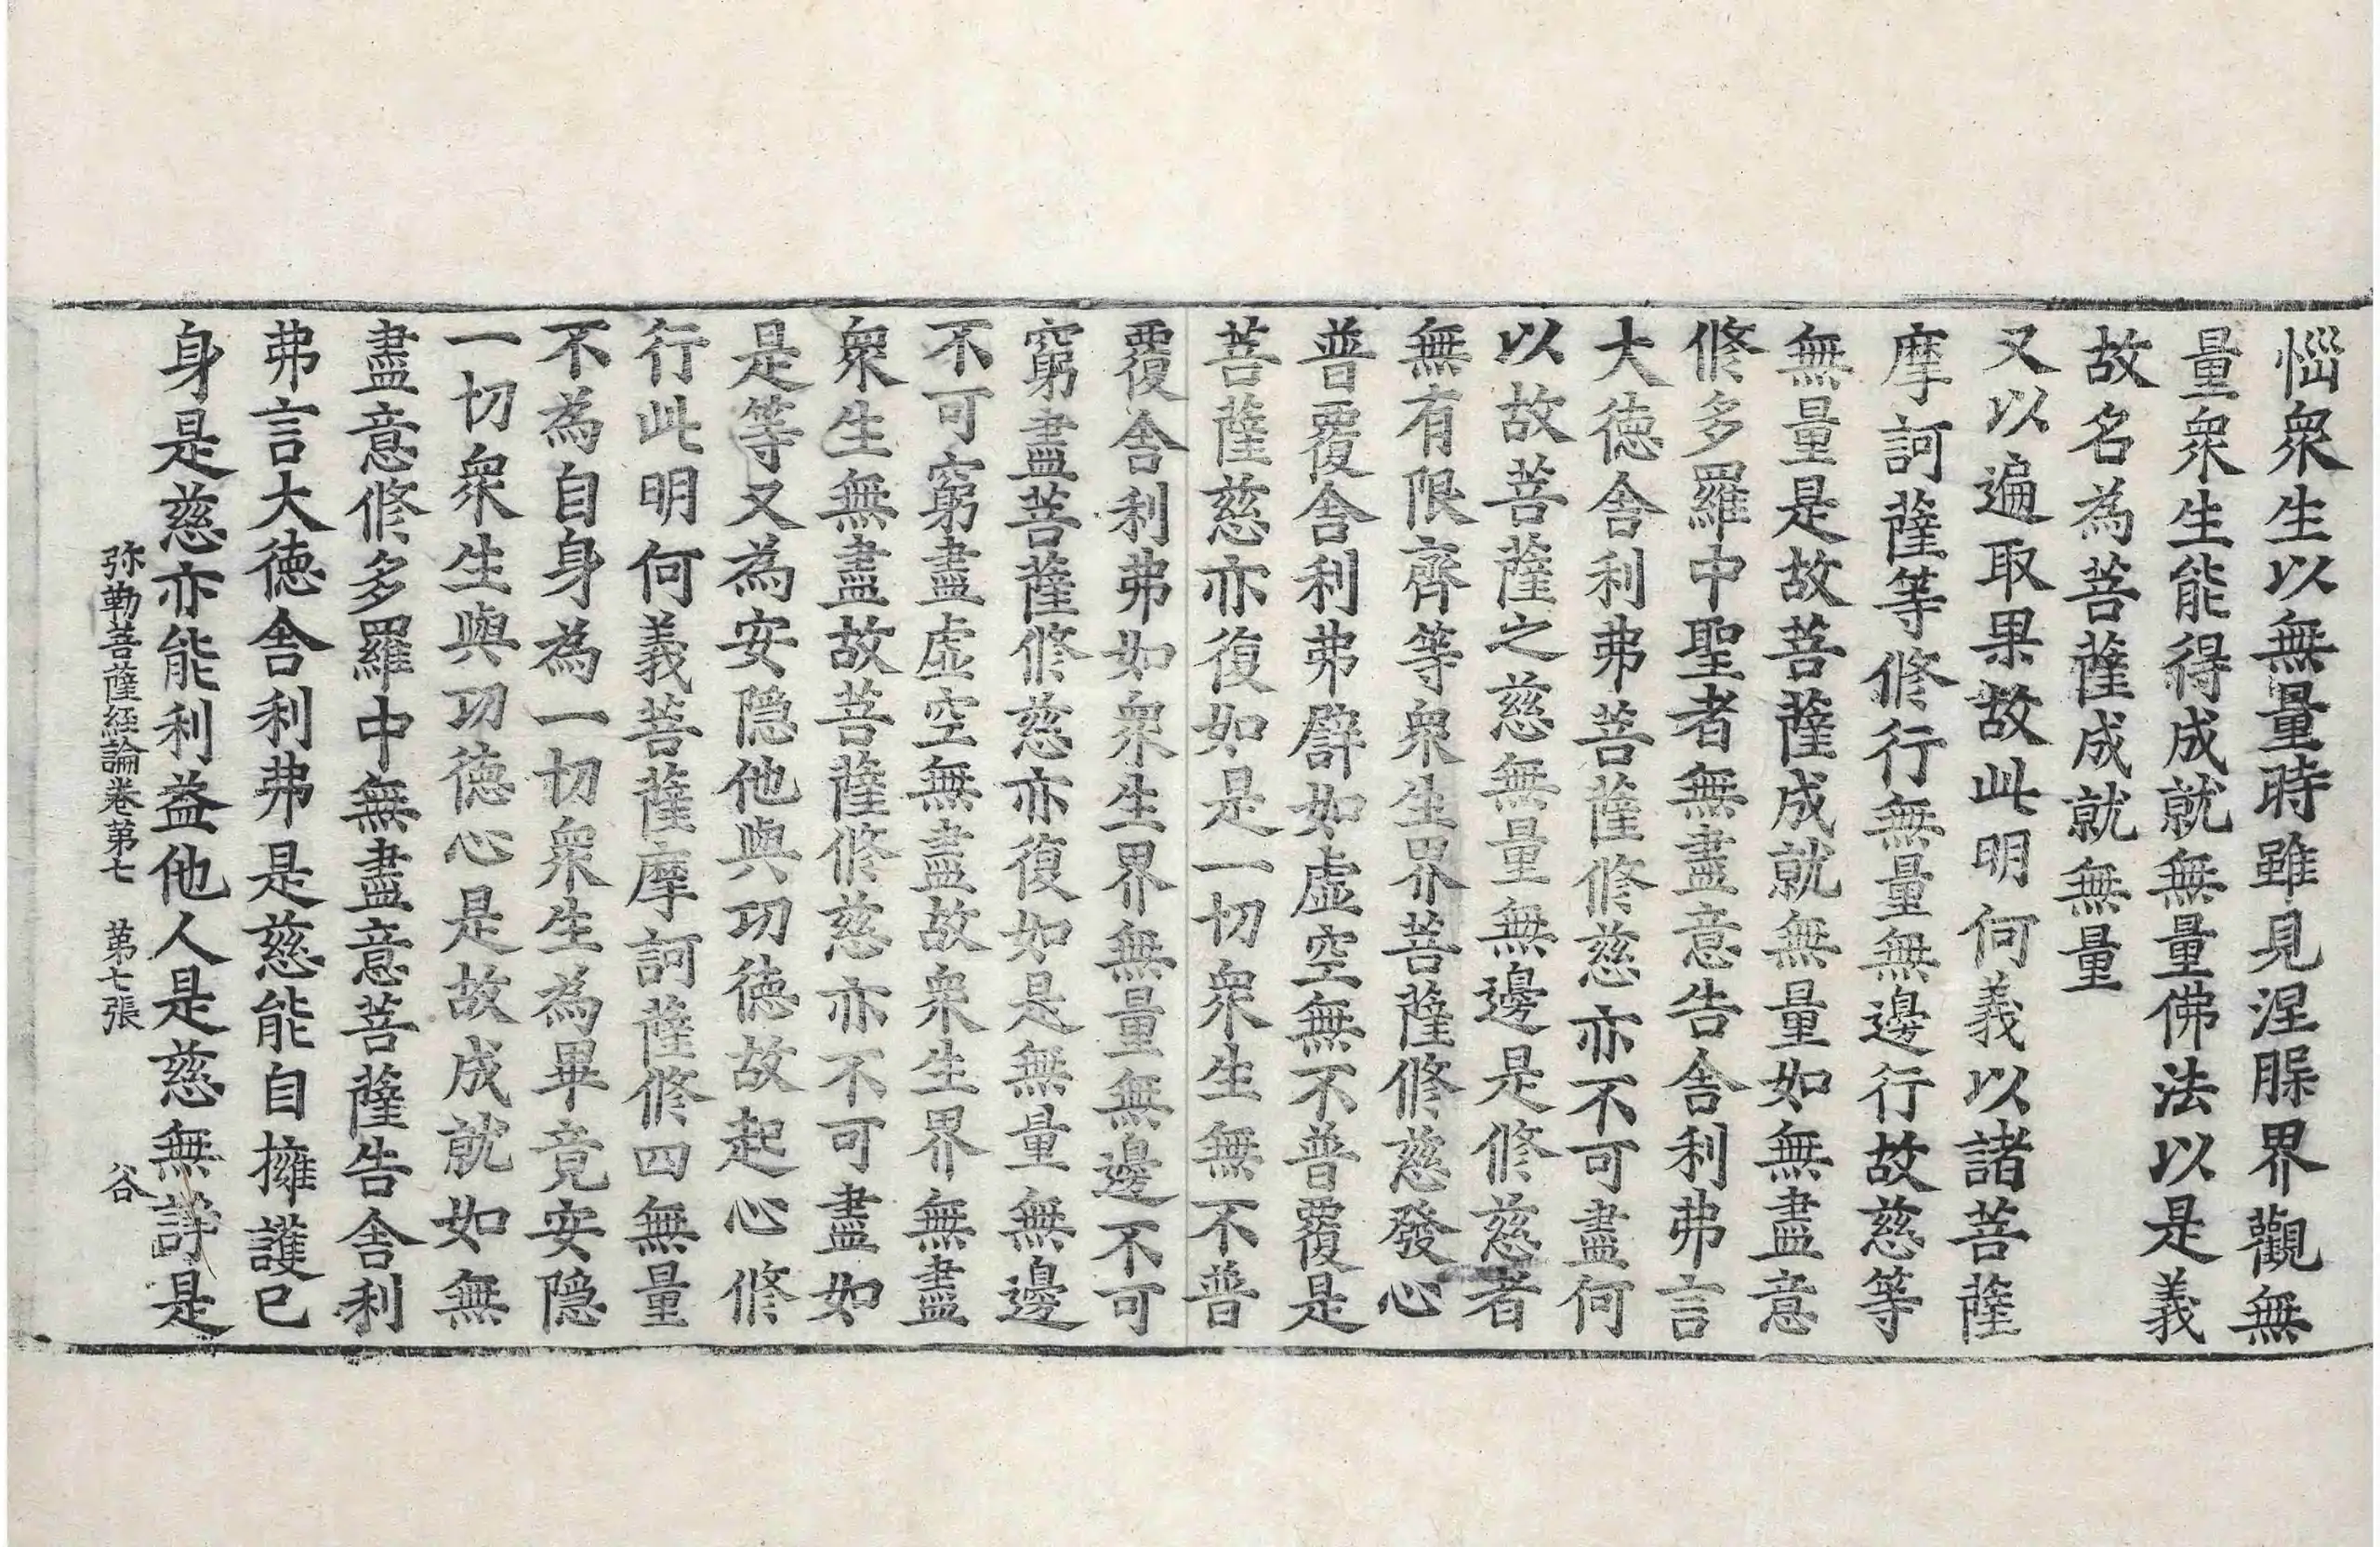 惱衆生以無量時雖見涅槃界觀無
量衆生能得成就無量佛法以是義
故名為菩薩成就無量
又以遍取果故此明何義以諸菩薩
摩訶薩等修行無量無邊行故慈等
無量是故菩薩成就無量如無盡意
修多羅中聖者無盡意告舍利弗言
大德舍利弗菩薩修慈亦不可盡何
以故菩薩之慈無量無邊是修慈者
無有限齊等衆生界菩薩修慈發心
普覆舍利弗譬如虛空無不普覆是
菩薩慈亦復如是一切衆生無不普
覆舍利弗如衆生界無量無邊不可
窮盡菩薩修慈亦復如是無量無邊
不可窮盡虛空無盡故衆生界無盡
衆生無盡故菩薩修慈亦不可盡如
是等又為安隱他與功德故起心修
行此明何義菩薩摩訶薩修四無量
不為自身為一切衆生為畢竟安隱
一切衆生與功德心是故成就如無
盡意修多羅中無盡意菩薩告舍利
弗言大德舍利弗是慈能自擁護己
身是慈亦能利益他人是慈無諍是
弥勒菩薩経論卷第七 第七張 谷